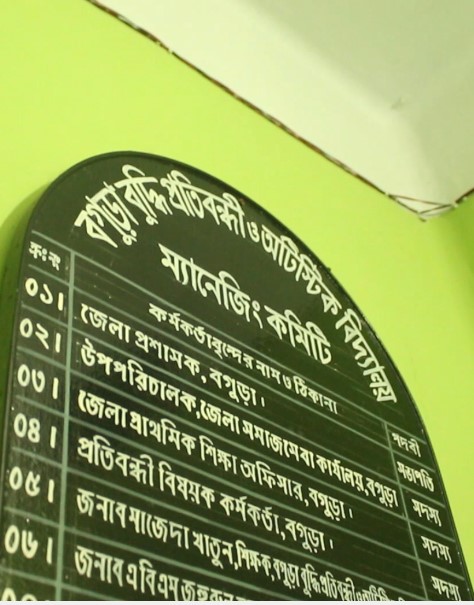 বগুড়া বুদ্ধি প্রতিবন্ধী ও অটিস্টিক বিদ্যালয়
ম্যানেজিং কমিটি
ক্রঃ নং কর্মকর্তাবৃন্দের নাম ও ঠিকানা পদবী
০১। জেলা প্রশাসক, বগুড়া। সভাপতি
০২। উপপরিচালক, জেলা সমাজসেবা কার্যালয়, বগুড়া সদস্য
০৩। জেলা প্রাথমিক শিক্ষা অফিসার, বগুড়া। সদস্য
০৪। প্রতিবন্ধী বিষয়ক কর্মকর্তা, বগুড়া। সদস্য
০৫। জনাব মাজেদা খাতুন, শিক্ষক, বগুড়া বুদ্ধি প্রতিবন্ধী ও অটিস্টিক
০৬। জনাব এ বি এম